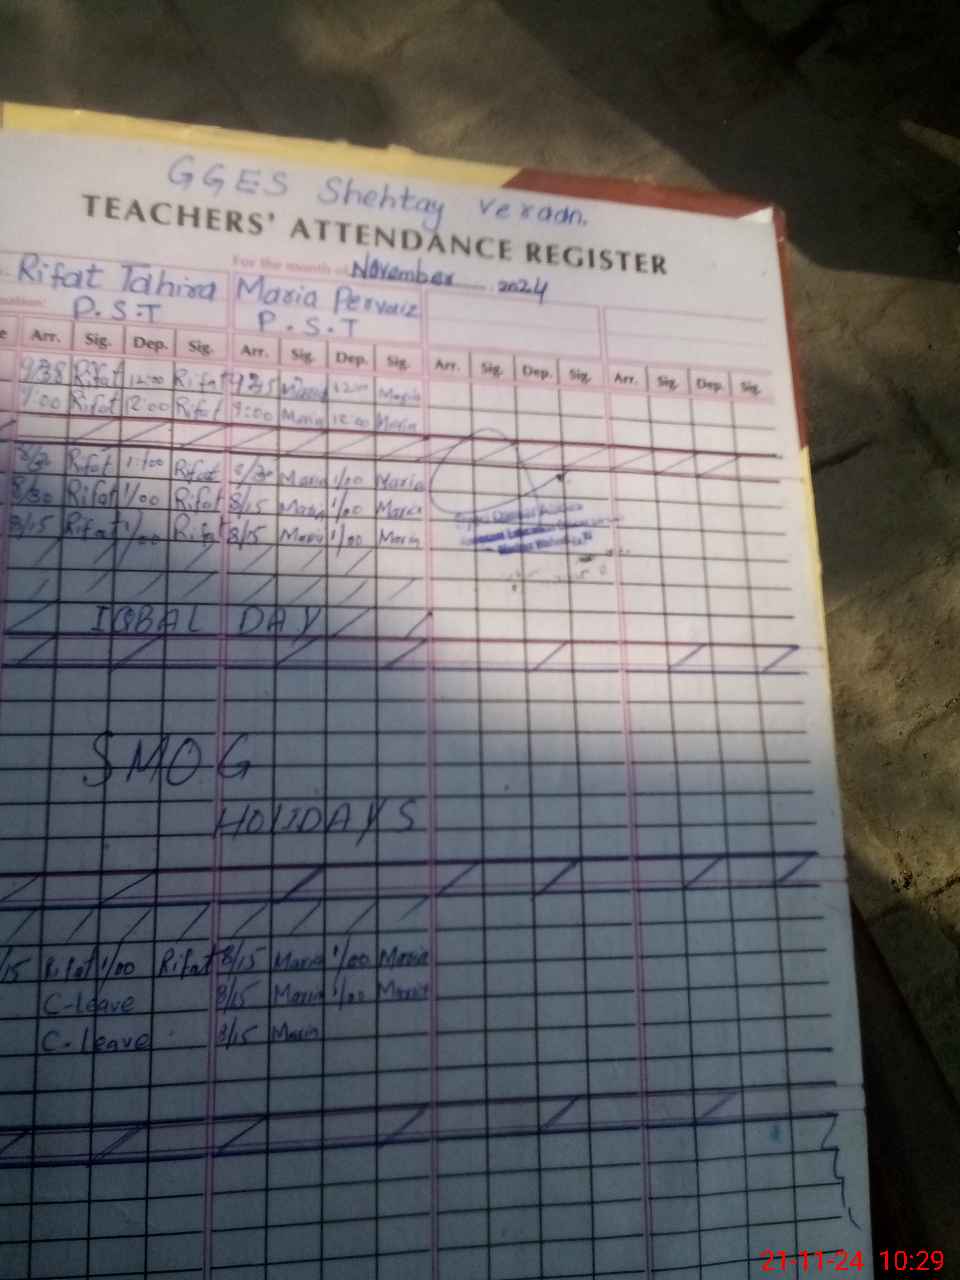 GGES Shehtay veradn.
TEACHERS' ATTENDANCE REGISTER
For the month of November 2024
Rifat Tahira Maria Pervaiz
P.S.T P.S.T
Arr. Sig. Dep. Sig. Arr. Sig. Dep. Sig. Arr. Sig. Dep. Sig. Arr. Sig. Dep. Sig.
9/38 Rifat 12:00 Rifat Maria 12:00 Maria
9:00 Rifat 12:00 Rifat 9:00 Maria 12:00 Maria
Rifat 1:00 Rifat 8/30 Maria 1/00 Maria
8/30 Rifat 1/00 Rifat 8/15 Maria 1/00 Maria
8/15 Rifat 1/00 Rifat 8/15 Maria 1/00 Maria
IQBAL DAY
SMOG
HOLIDAYS
/15 Rifat 1/00 Rifat 8/15 Maria 1/00 Maria
C-leave 8/15 Maria 1/00 Maria
C-leave 8/15 Maria
21-11-24 10:29